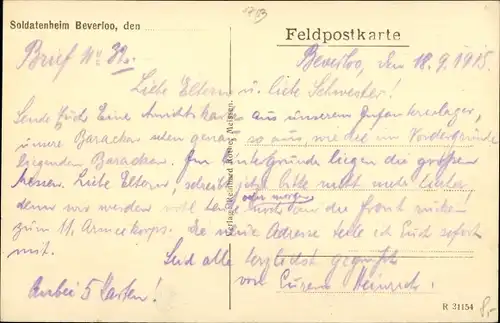 Soldatenheim Beverloo, den
Feldpostkarte
Brief No 32.
Beverloo, den 18.9.1915.
Liebe Eltern u. liebe Schwester!
Sende Euch Eine Ansichtskarte aus unserem Infanterielager,
unsere Baracken sehen genau so aus, wie die im Vordergrunde
liegenden Baracken. Im Hintergrunde liegen die großen
Messen. Liebe Eltern, schreibt jetzt bitte nicht mehr hierher!
denn wir werden wohl heute oder morgen noch an die Front rücken
zum 11. Armeekorps. Die neue Adresse teile ich Euch sofort
mit.
Seid alle herzlichst gegrüßt
von Eurem Heinrich!
Anbei 5 Karten!
Verlag: Reinhard Rothe, Meissen.
R 31154
8,-